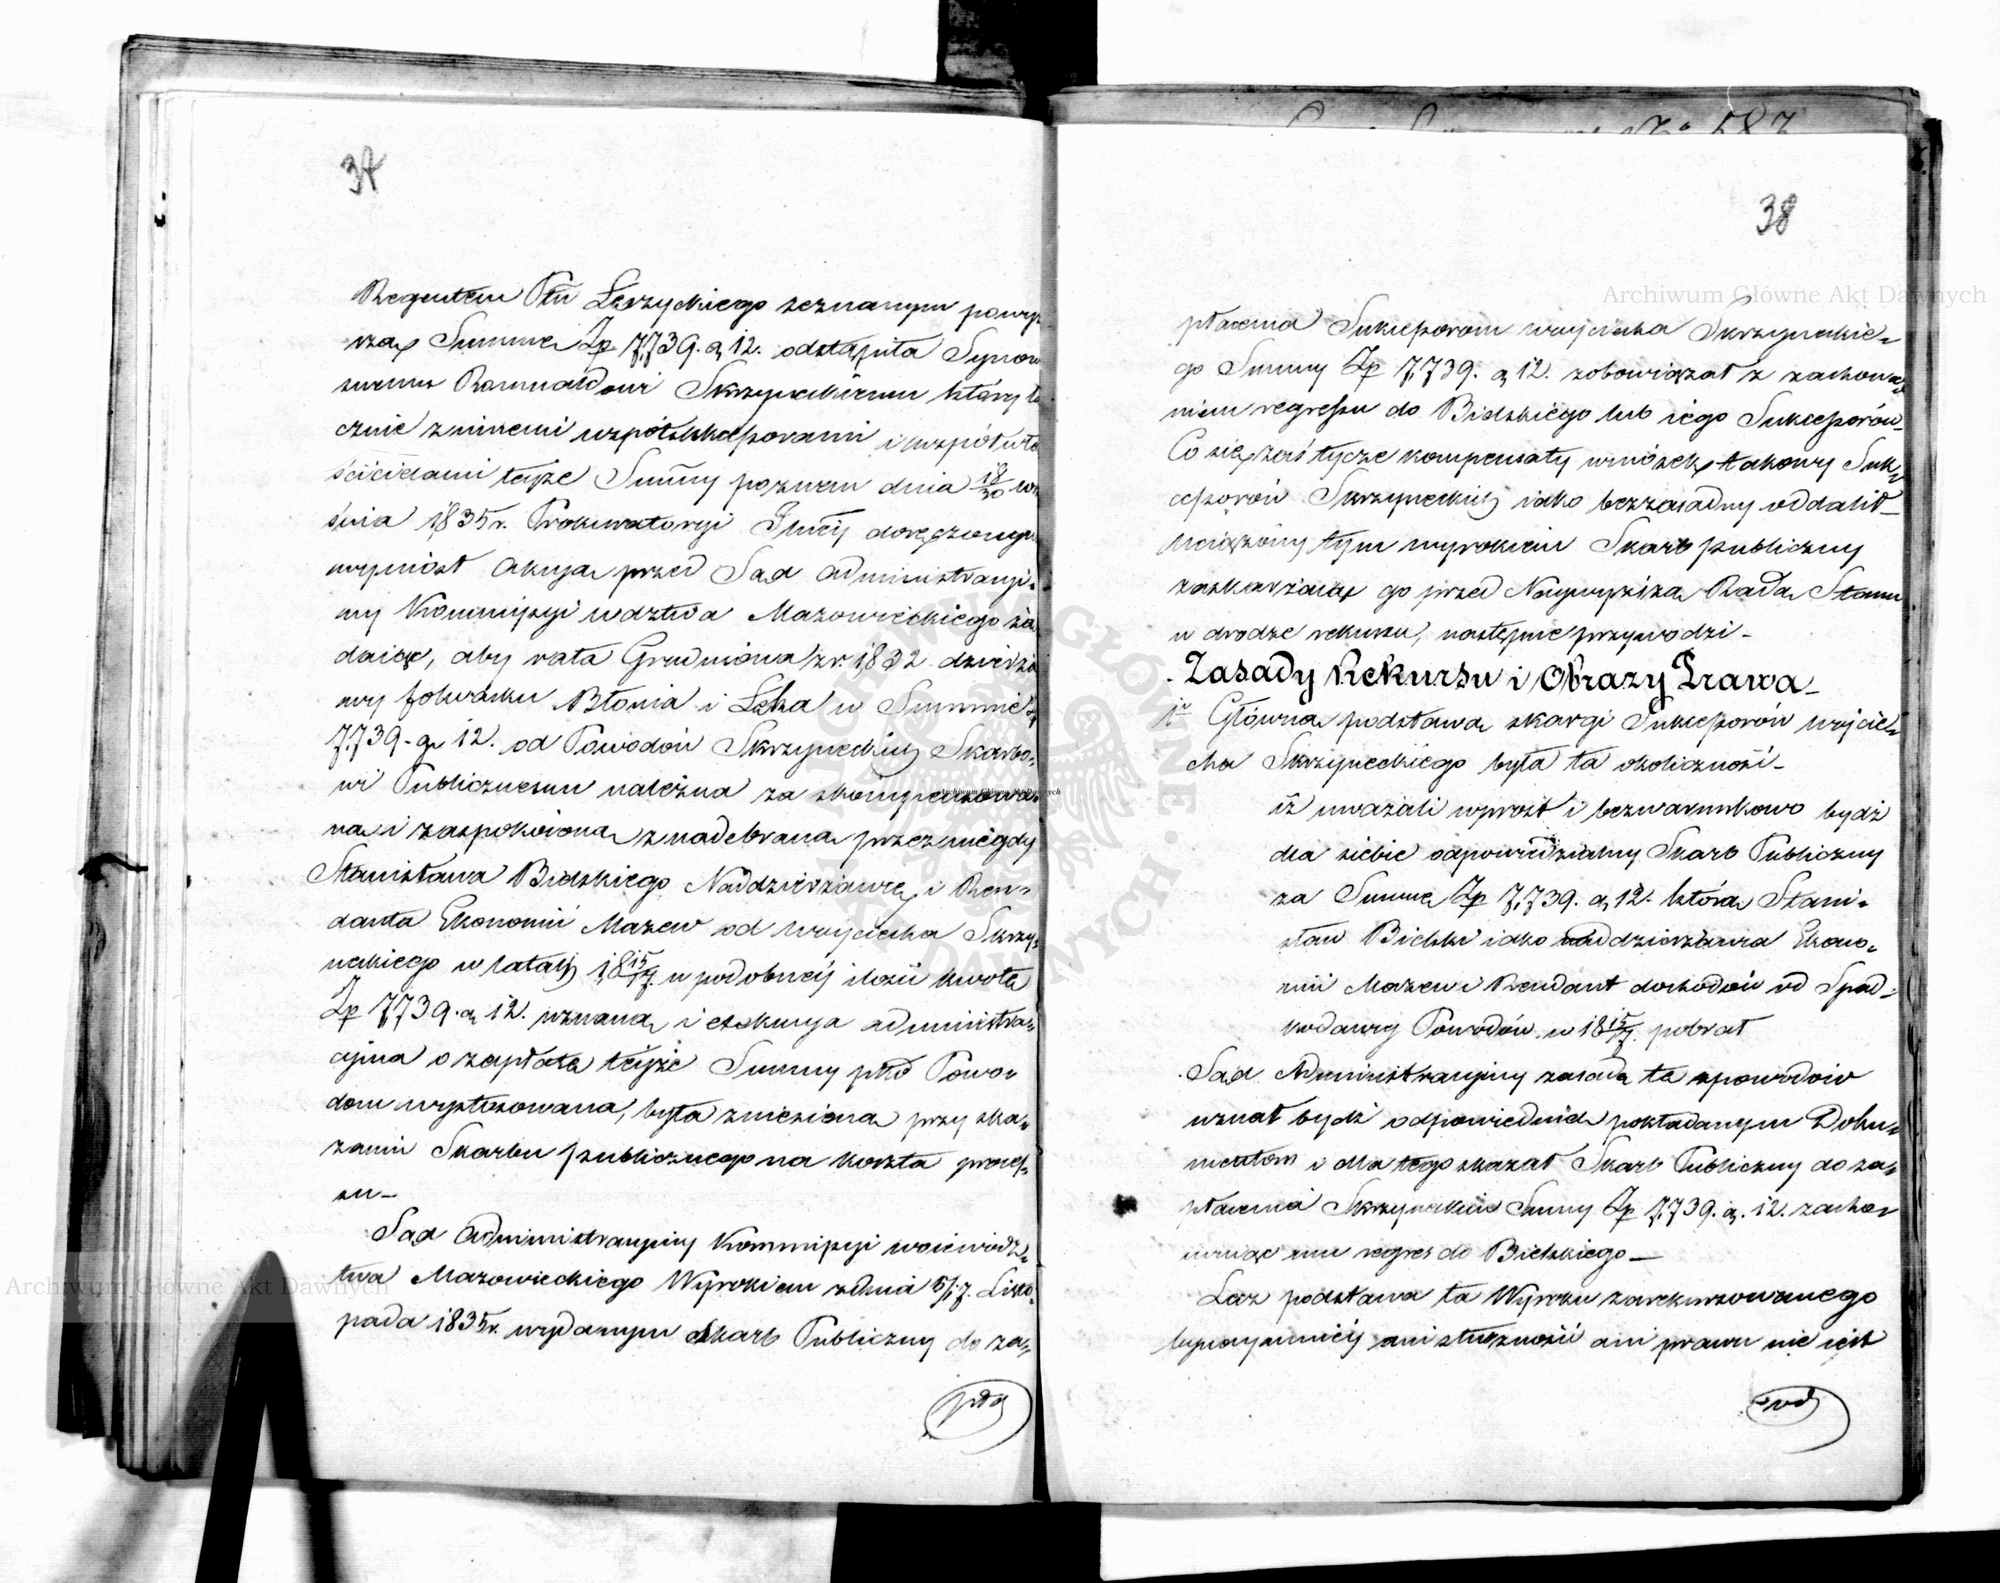 37
Regentem Ptu Łęczyckiego zeznanym powyż
szą Summę Zp 7,739. g 12. odstąpiła Synow
swemu Romualdowi Skrzyneckiemu który łą
cznie z innemi współsukcessorami i współwła
ścicielami tejże Summy pozwem dnia 18/30 wrz
śnia 1835 r. Prokuratoryi Jlney doręczonym
wyniósł akcyą przed Sąd Administracyi-
ny Kommissyi wdztwa Mazowieckiego żą
daiąc, aby rata Grudniowa z r. 1832 dzierża
wy folwarku Błonia i Leżka w Summie Zp
7,739. g 12. od Powodów Skrzyneckich Skarbo-
wi Publicznemu należna za skompensowa-
ną i zaspokoioną z nadebraną przez niegdy
Stanisława Bielskiego Naddzierżawcę i Ren-
danta Ekonomii Mazew od Wojciecha Skrzy-
neckiego w latach 1815/17. w podobnéj ilości kwotą
Zp 7,739. g 12. uznaną i exekucya administra-
cyjna o zapłatę tejże Summy pko Powo-
dom wystosowana, była zniesioną przy ska-
zaniu Skarbu publicznego na koszta proces-
su-
Sąd Administracyjny Kommissyi wojewódz-
twa Mazowieckiego Wyrokiem z dnia 5/17. Listo-
pada 1835 r. wydanym Skarb Publiczny do za-
płac
38
płacenia Sukcessorom wojciecha Skrzyneckie-
go Summy Zp 7,739. g 12. zobowiązał z zachowa
niem regressu do Bielskiego lub iego Sukcessorów-
Co się zaś tycze kompensaty wniosek takowy Suk-
cessorów Skrzyneckich iako bezzasadny oddalił-
Uciążony tym wyrokiem Skarb publiczny
zaskarżaiąc go przed Naywyższą Radą Stanu
w drodze rekursu, następnie przywodzi-
Zasady Rekursu i Obrazy Prawa-
1e Główną podstawą skargi Sukcessorów wojcie-
cha Skrzyneckiego była ta okoliczność-
iż uważali wprost i bezwarunkowo bydź
dla siebie odpowiedzialny Skarb Publiczny
za Summę Zp 7,739. g 12. którą Stani-
sław Bielski iako naddzierżawca Ekono-
mii Mazew i Rendant dochodów od Spad-
kodawcy Powodów w 1815/17. pobrał
Sąd Administracyjny zasadę tę z powodów
uznał bydź odpowiednią pokładanym Doku-
mentom i dla tego skazał Skarb Publiczny do za-
płacenia Skrzyneckim Summy Zp 7,739. g. 12. zacho-
wuiąc mu regres do Bielskiego-
Lecz podstawa ta Wyroku zarekursowanego
bynaymniéj ani słuszności ani prawu nie iest